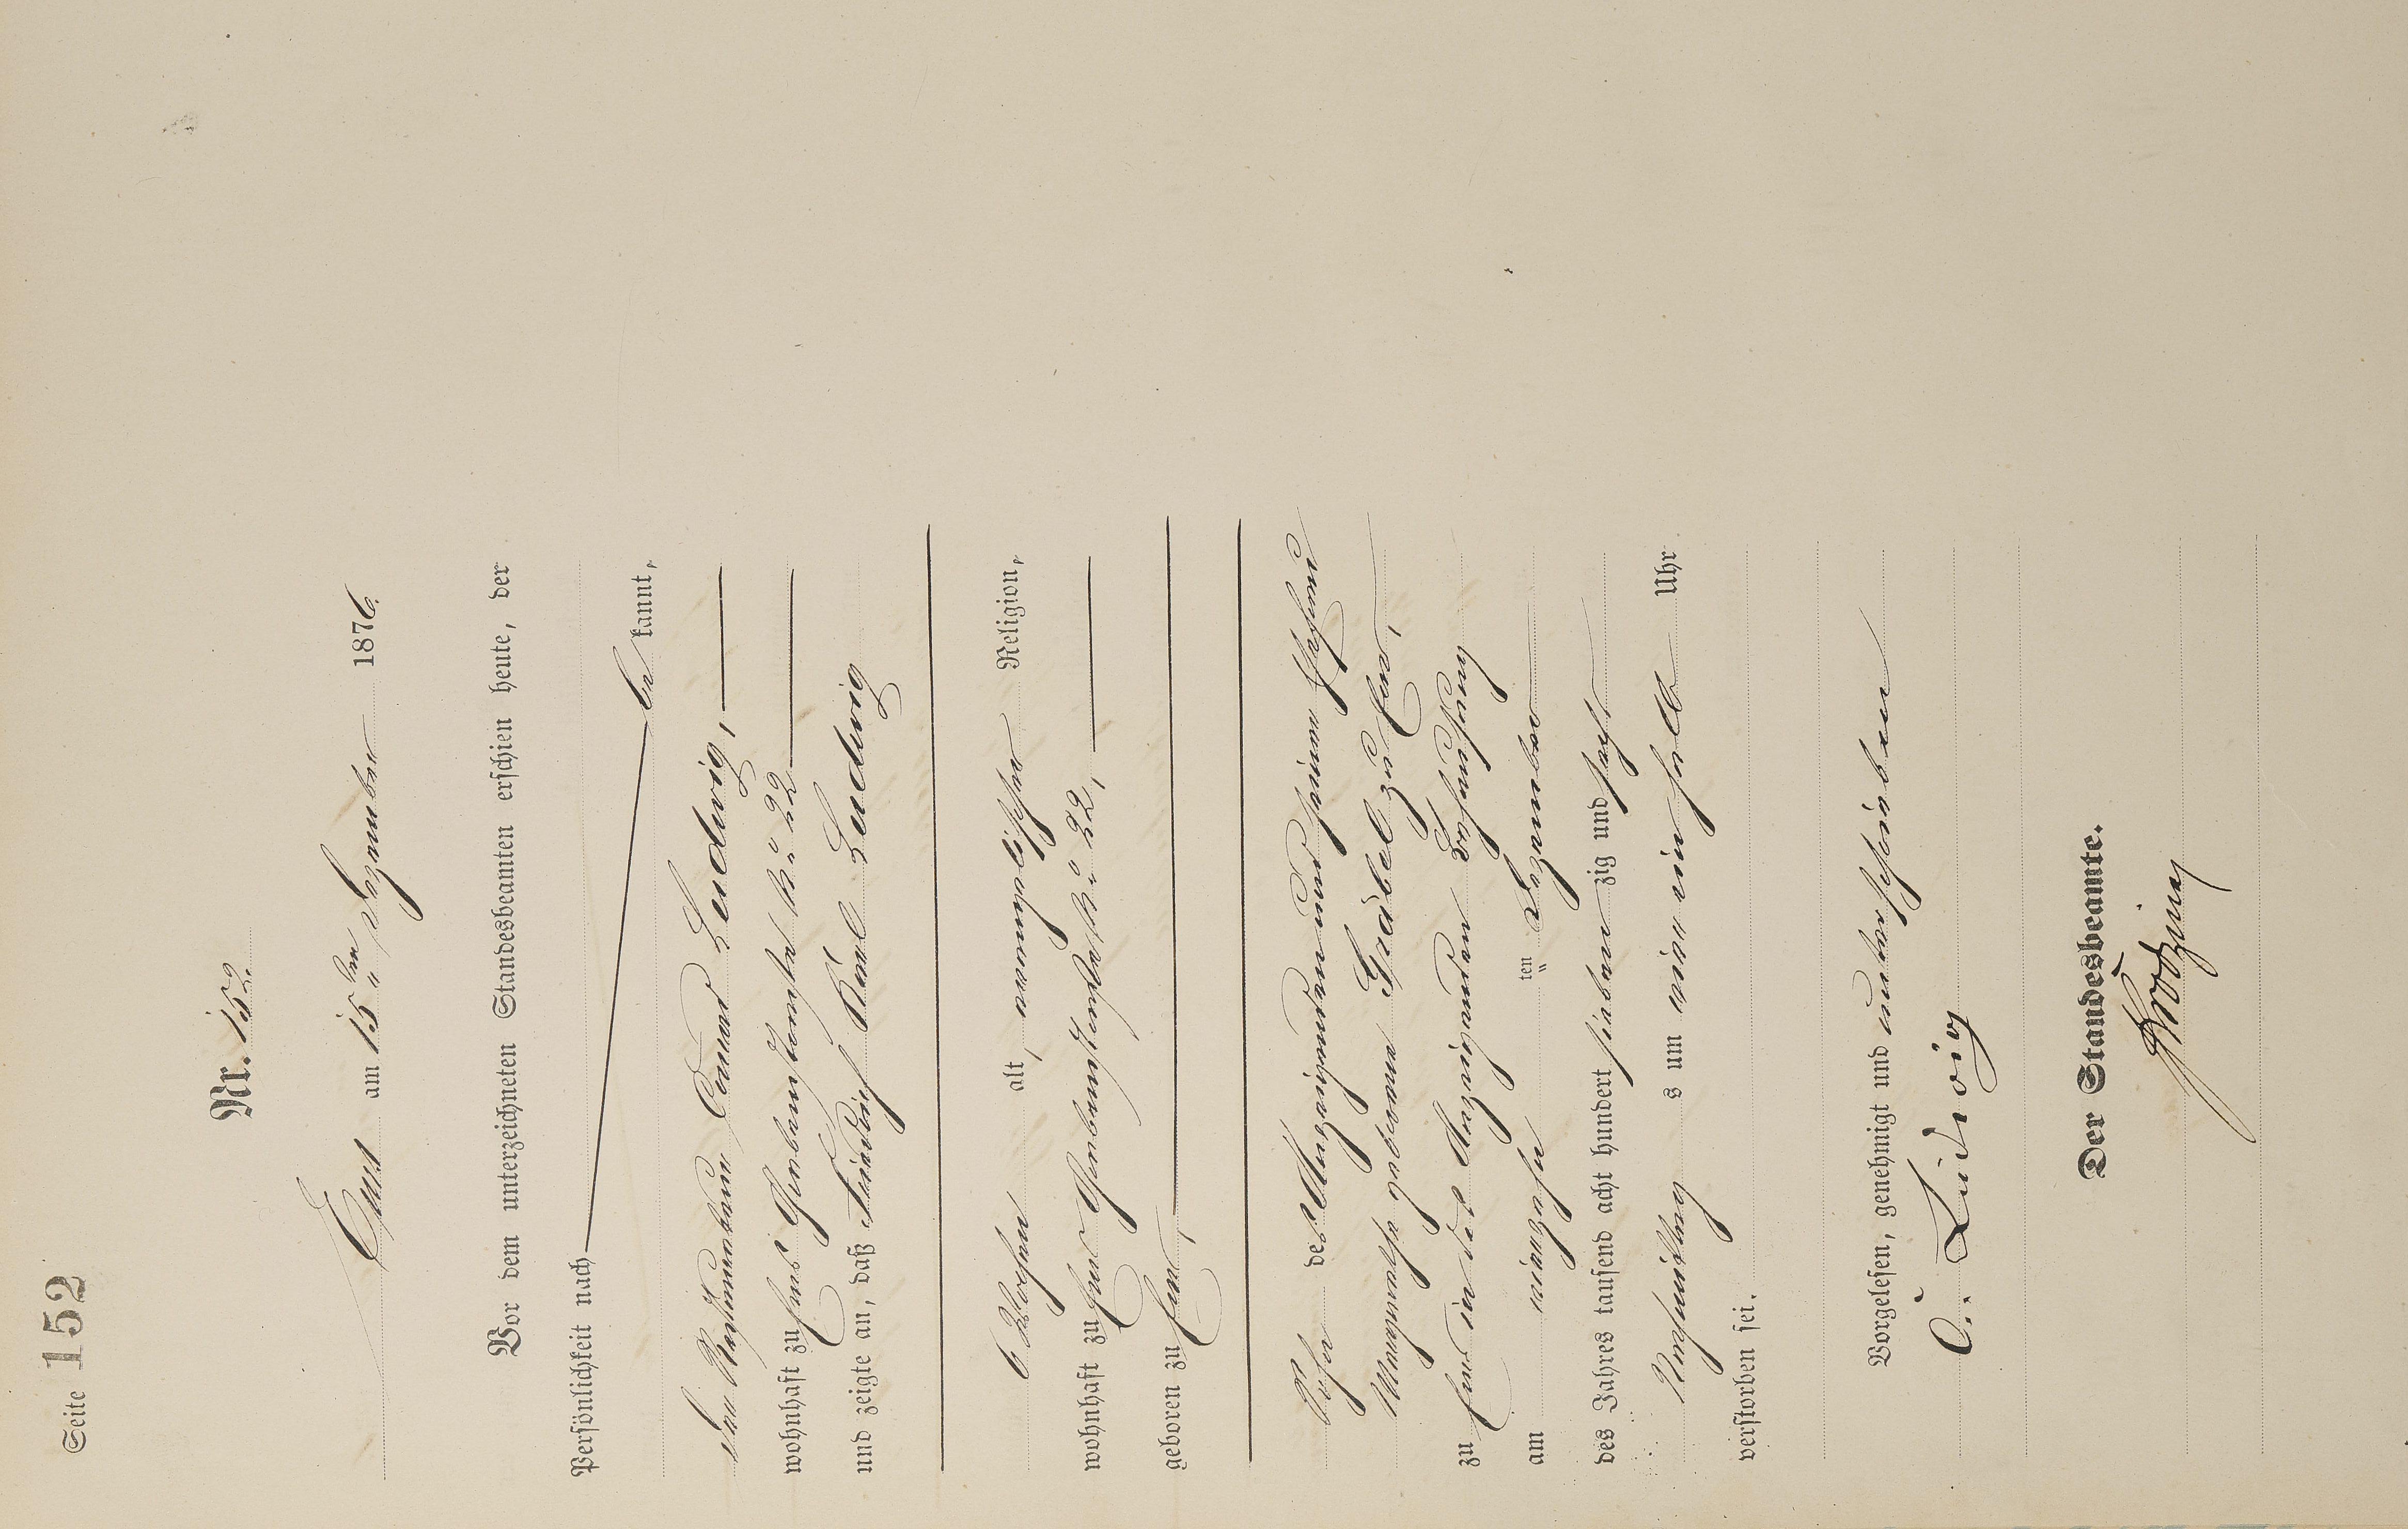 Seite 152
Nr. 152.
Ems am 15ten Dezember 1876.
Vor dem unterzeichneten Standesbeamten erschien heute, der
Persönlichkeit nach
be kannt,
der Conrad Ludwig,
wohnhaft zu Ems No 22
und zeigte an, daß Friedrich Karl Ludwig
6 Wochen alt, evangelischer Religion,
wohnhaft zu Ems No 22,
geboren zu Ems,
Sohn des Anzeigenden und seiner Ehefrau
Margarethe geborenen Gräbel zu Ems,
zu Ems in des Anzeigenden Behausung
am vierzehn ten Dezember
des Jahres tausend acht hundert sieben zig und sechs
Nachmittag s um vier einhalb Uhr
verstorben sei.
Vorgelesen, genehmigt und unterschrieben
C. Ludwig
Der Standesbeamte.